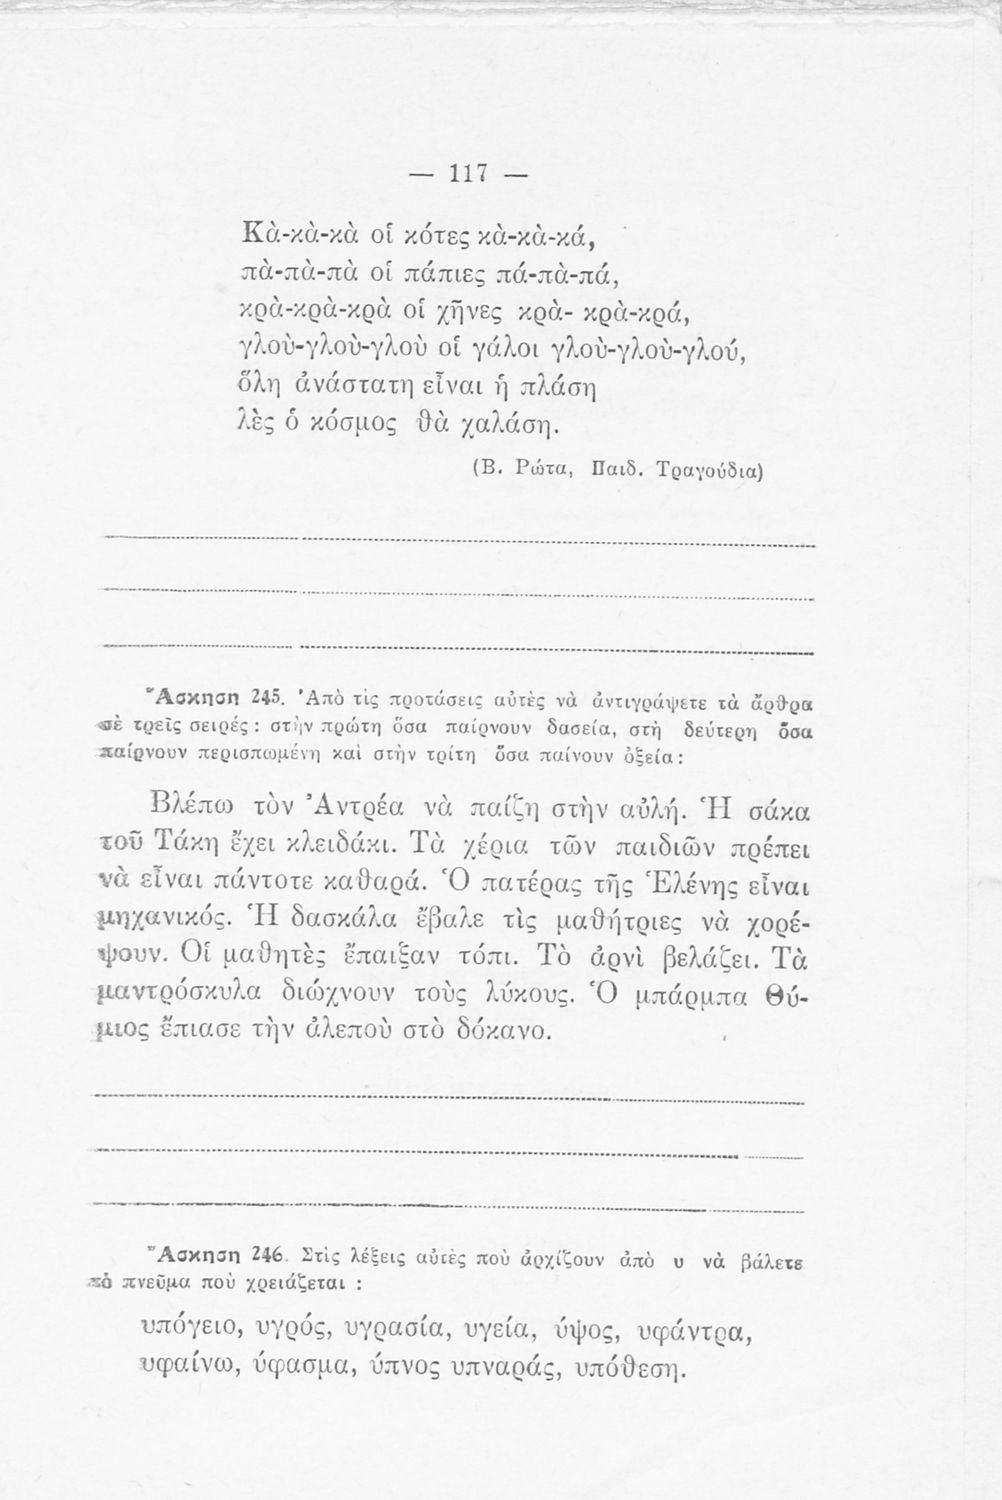 — 117 —
Κὰ-κὰ-κὰ οἱ κότες κὰ-κὰ-κά,
πὰ-πὰ-πὰ οἱ πάπιες πά-πὰ-πά,
κρὰ-κρὰ-κρὰ οἱ χῆνες κρὰ- κρὰ-κρά,
γλοὺ-γλοὺ-γλοὺ οἱ γάλοι γλοὺ-γλοὺ-γλού,
ὅλη ἀνάστατη εἶναι ἡ πλάση
λὲς ὁ κόσμος θὰ χαλάση.
(Β. Ρώτα, Παιδ. Τραγούδια)
Ἄσκηση 245. Ἀπὸ τὶς προτάσεις αὐτὲς νὰ ἀντιγράψετε τὰ ἄρθρα
σὲ τρεῖς σειρές: στὴν πρώτη ὅσα παίρνουν δασεία, στὴ δεύτερη ὅσα
παίρνουν περισπωμένη καὶ στὴν τρίτη ὅσα παίνουν ὀξεία:
Βλέπω τὸν Ἀντρέα νὰ παίζη στὴν αὐλή. Ἡ σάκα
τοῦ Τάκη ἔχει κλειδάκι. Τὰ χέρια τῶν παιδιῶν πρέπει
νὰ εἶναι πάντοτε καθαρά. Ὁ πατέρας τῆς Ἑλένης εἶναι
μηχανικός. Ἡ δασκάλα ἔβαλε τὶς μαθήτριες νὰ χορέ-
ψουν. Οἱ μαθητὲς ἔπαιξαν τόπι. Τὸ ἀρνὶ βελάζει. Τὰ
μαντρόσκυλα διώχνουν τοὺς λύκους. Ὁ μπάρμπα Θύ-
μιος ἔπιασε τὴν ἀλεποὺ στὸ δόκανο.
Ἄσκηση 246. Στὶς λέξεις αὐτὲς ποὺ ἀρχίζουν ἀπὸ υ νὰ βάλετε
τὸ πνεῦμα ποὺ χρειάζεται :
υπόγειο, υγρός, υγρασία, υγεία, ύψος, υφάντρα,
υφαίνω, ύφασμα, ύπνος υπναράς, υπόθεση.